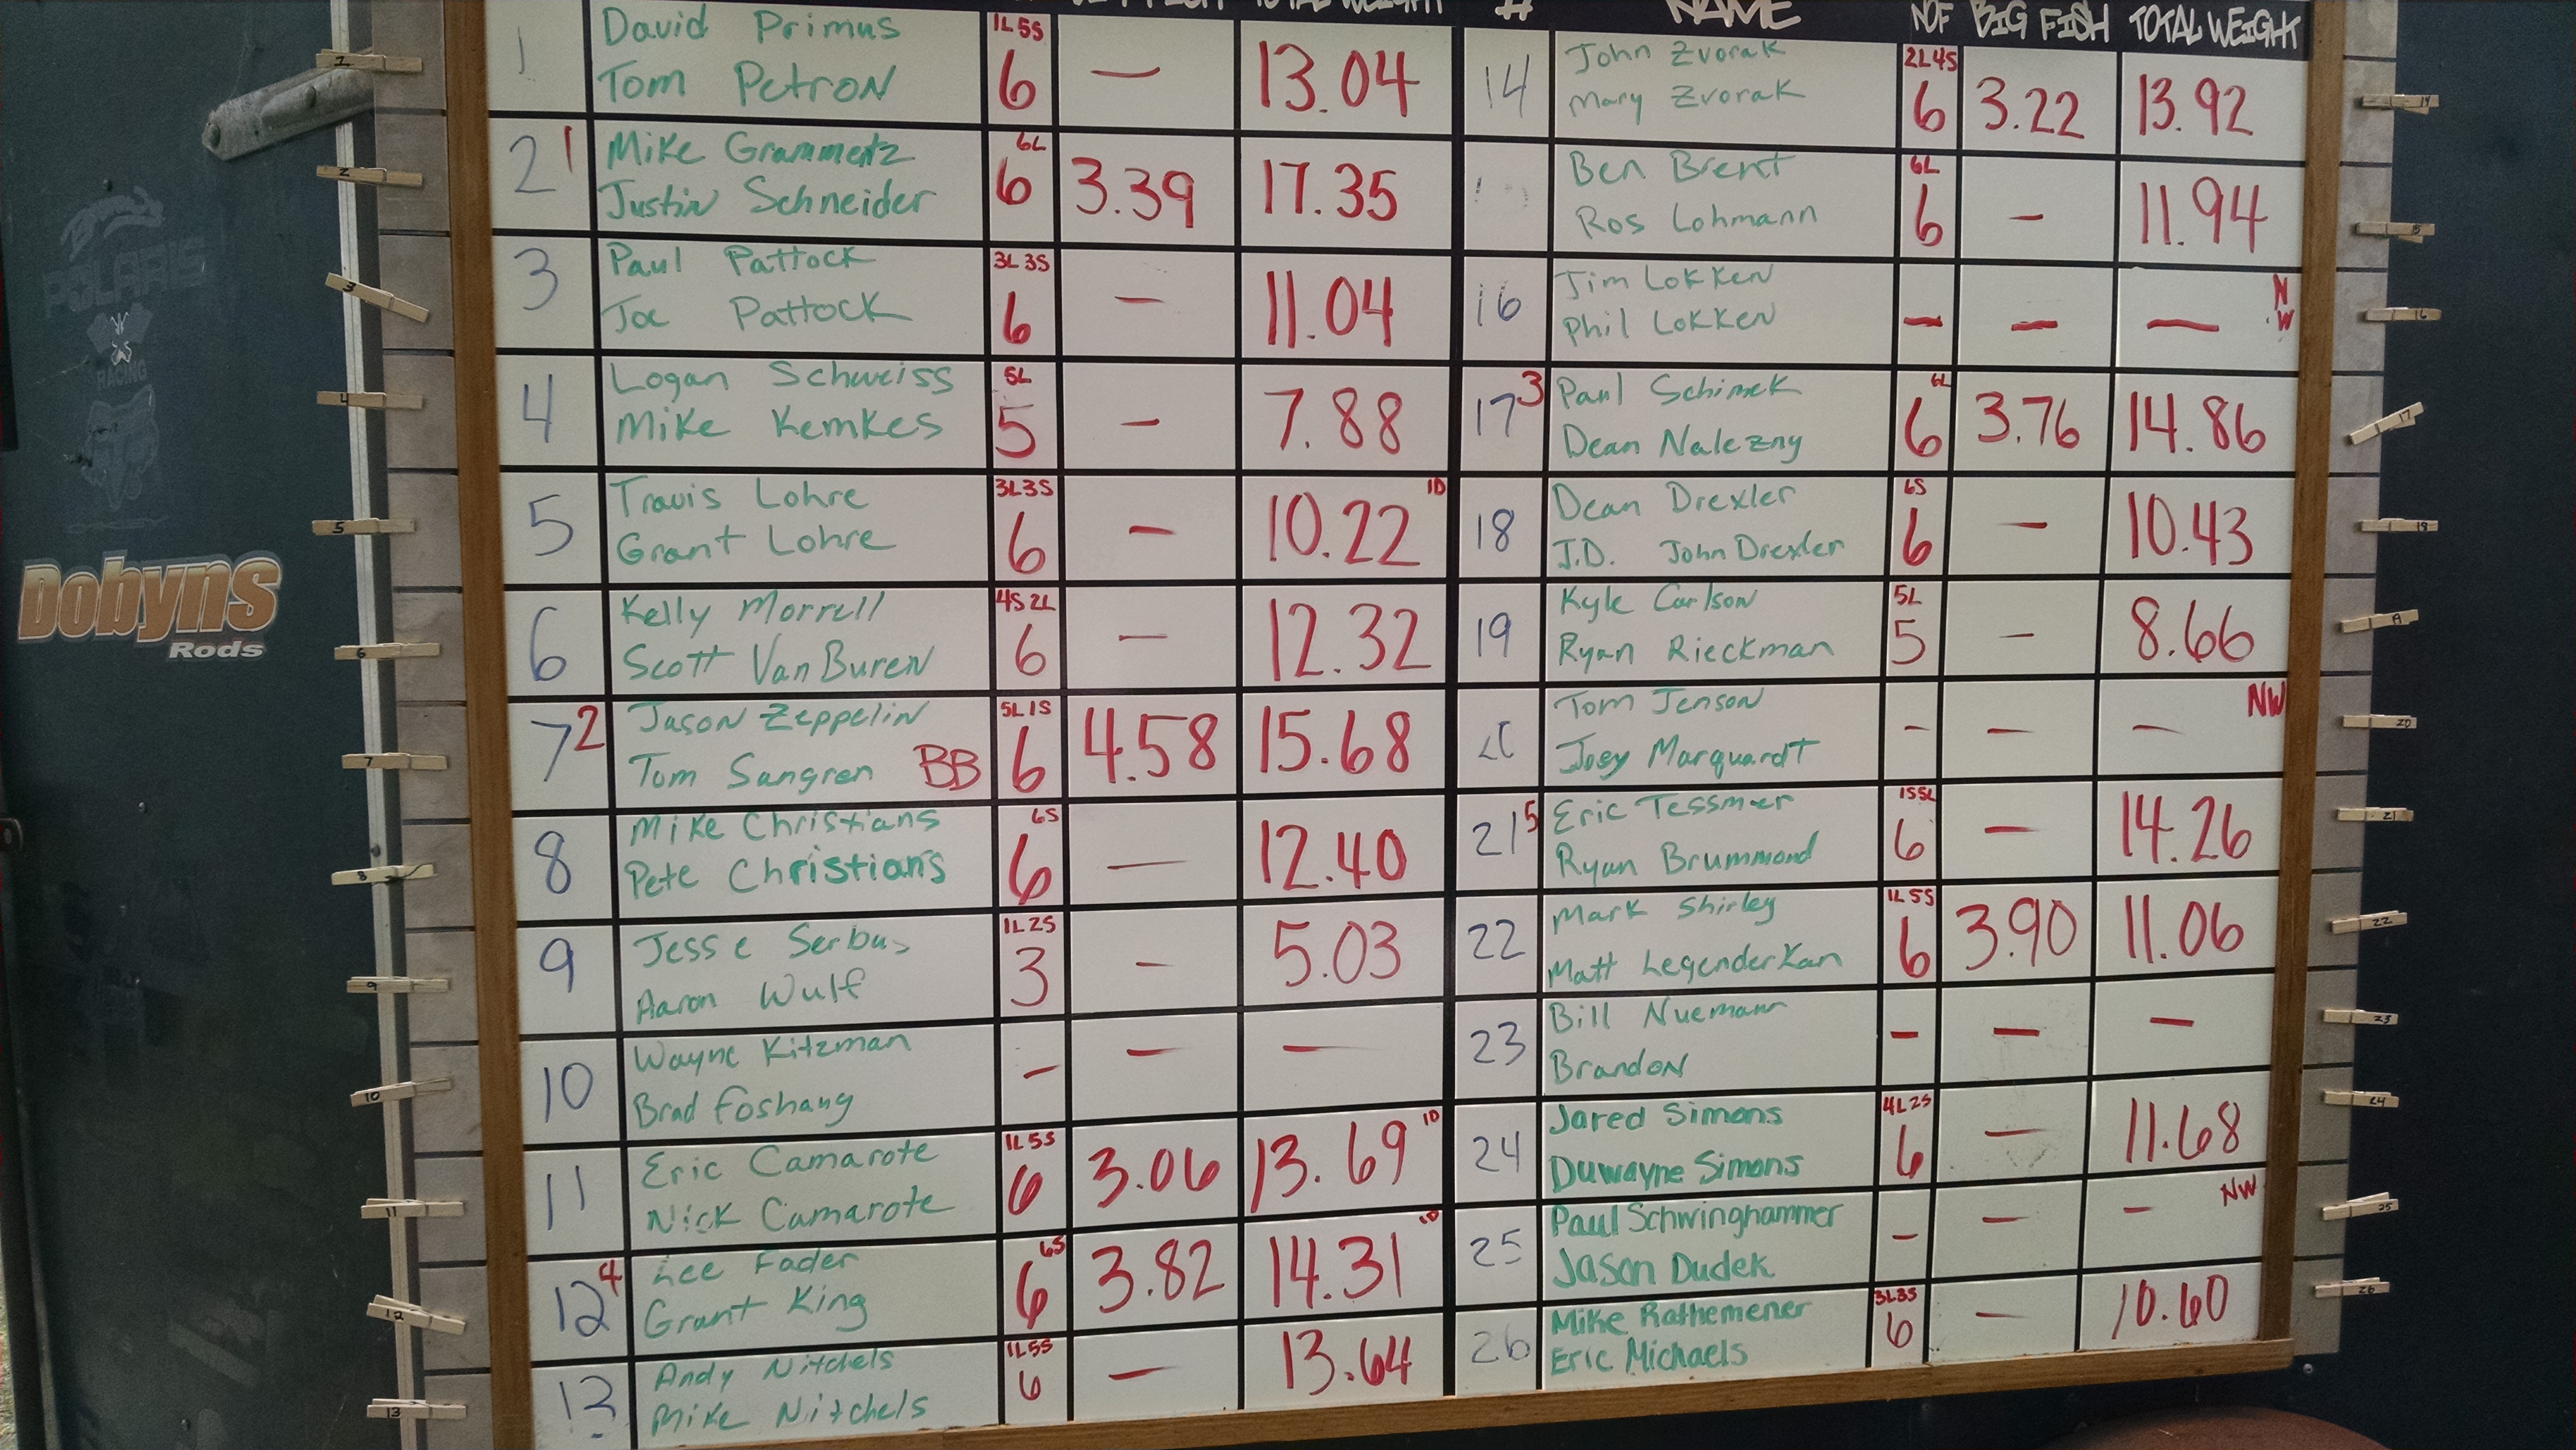 # NAME NOF BIG FISH TOTAL WEIGHT
1 David Primus 1L5S
Tom Petron 6 — 13.04
2 1 Mike Grammentz 6L
Justin Schneider 6 3.39 17.35
3 Paul Pattock 3L3S
Joe Pattock 6 — 11.04
4 Logan Schweiss 5L
Mike Kemkes 5 — 7.88
5 Travis Lohre 3L3S 1D
Grant Lohre 6 — 10.22
6 Kelly Morrell 4S2L
Scott VanBuren 6 — 12.32
7 2 Jason Zeppelin 5L1S
Tom Sangren BB 6 4.58 15.68
8 Mike Christians 6S
Pete Christians 6 — 12.40
9 Jesse Serbus 1L2S
Aaron Wulf 3 — 5.03
10 Wayne Kitzman
Brad Foshang — — —
11 Eric Camarote 1L5S 1D
Nick Camarote 6 3.06 13.69
12 4 Lee Fader 6S 1D
Grant King 6 3.82 14.31
13 Andy Nitchels 1L5S
Mike Nitchels 6 — 13.64
14 John Zvorak 2L4S
Mary Zvorak 6 3.22 13.92
Ben Brent 6L
Ros Lohmann 6 - 11.94
16 Jim Lokken NW
Phil Lokken — — —
17 3 Paul Schimek 6L
Dean Nalezny 6 3.76 14.86
18 Dean Drexler 6S
J.D. John Drexler 6 — 10.43
19 Kyle Carlson 5L
Ryan Rieckman 5 - 8.66
20 Tom Jenson NW
Joey Marquardt - — -
21 5 Eric Tessmer 1S5L
Ryan Brummond 6 — 14.26
22 Mark Shirley 1L5S
Matt LegenderKan 6 3.90 11.06
23 Bill Nuemann
Brandon - — —
24 Jared Simons 4L2S
Duwayne Simons 6 — 11.68
25 Paul Schwinghammer NW
Jason Dudek - — -
26 Mike Rathemener 3L3S
Eric Michaels 6 — 10.60
POLARIS
RACING
Dobyns
Rods
1
2
3
4
5
6
7
8
9
10
11
12
13
14
15
16
17
18
19
20
21
22
23
24
25
26